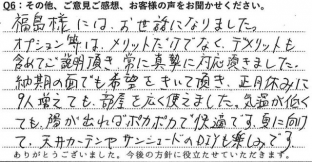 Q6：その他、ご意見ご感想、お客様の声をお聞かせください。
福島様には、お世話になりました。
オプション等は、メリットだけでなく、デメリットも
含めてご説明頂き、常に真摯に対応頂きました。
納期の面でも希望をきいて頂き、正月休みに
9人増えても、部屋を広く使えました。気温が低く
ても、陽が出ればポカポカで快適です。夏に向け
て、天井カーテンやサンシェードのDIYも楽しみです
ありがとうございました。今後の方針に役立たせていただきます。